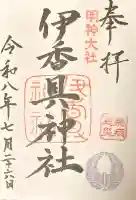 奉拝
明神大社
伊香具神社
令和八年七月二十六日